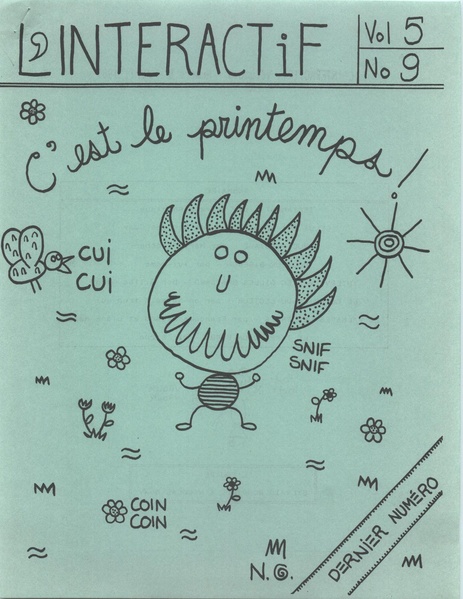 L'INTERACTiF
Vol 5
No 9
C'est le printemps!
CUI
CUI
SNIF
SNIF
COIN
COIN
DERNIER NUMÉRO
N.G.